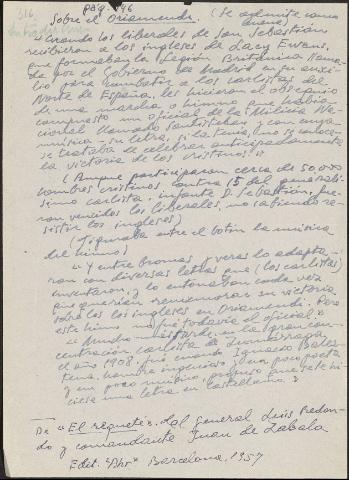 316
pág. 96
Sobre el Oriamendi. (Se admite como bueno)
"Cuando los liberales de San Sebastián
recibieron a los ingleses de Lacy Ewans,
que formaban la Legión Británica llama-
da por el Gobierno de Madrid en su auxi-
lio para combatir a los carlistas del
Norte de España, les hicieron el obsequio
de una marcha o himno que había
compuesto un oficial de la Milicia Na-
cional llamado Santisteban y con cuya
música - su letra, si la tenía, no se conoce -
se trataba de celebrar anticipadamente
la victoria de los cristinos."
(Aunque participaron cerca de 50.000
hombres cristinos contra 15 del generalí-
simo carlista, infante D. Sebastián, fue-
ron vencidos los liberales, no sabiendo re-
sistir los ingleses)
(Figuraba entre el botín la música
del himno)
"Y entre bromas y veras lo adapta-
ron con diversas letras que (los carlistas)
inventaron, y lo entonaban cada vez
que querían rememorar su victoria
sobre los ingleses en Oriamendi. Pero
este himno no fue todavía el oficial."
"Mucho más tarde, en la gran con-
centración carlista de Zumárraga
el año 1908, fue cuando Ignacio Bales-
tena, hombre ingenioso, y un poco poeta
y un poco músico, propuso que se le hi-
ciese una letra en castellano."
De "El requeté". Del general Luis Redon-
do y comandante Juan de Zabala
Edit. "Ahr" Barcelona, 1957